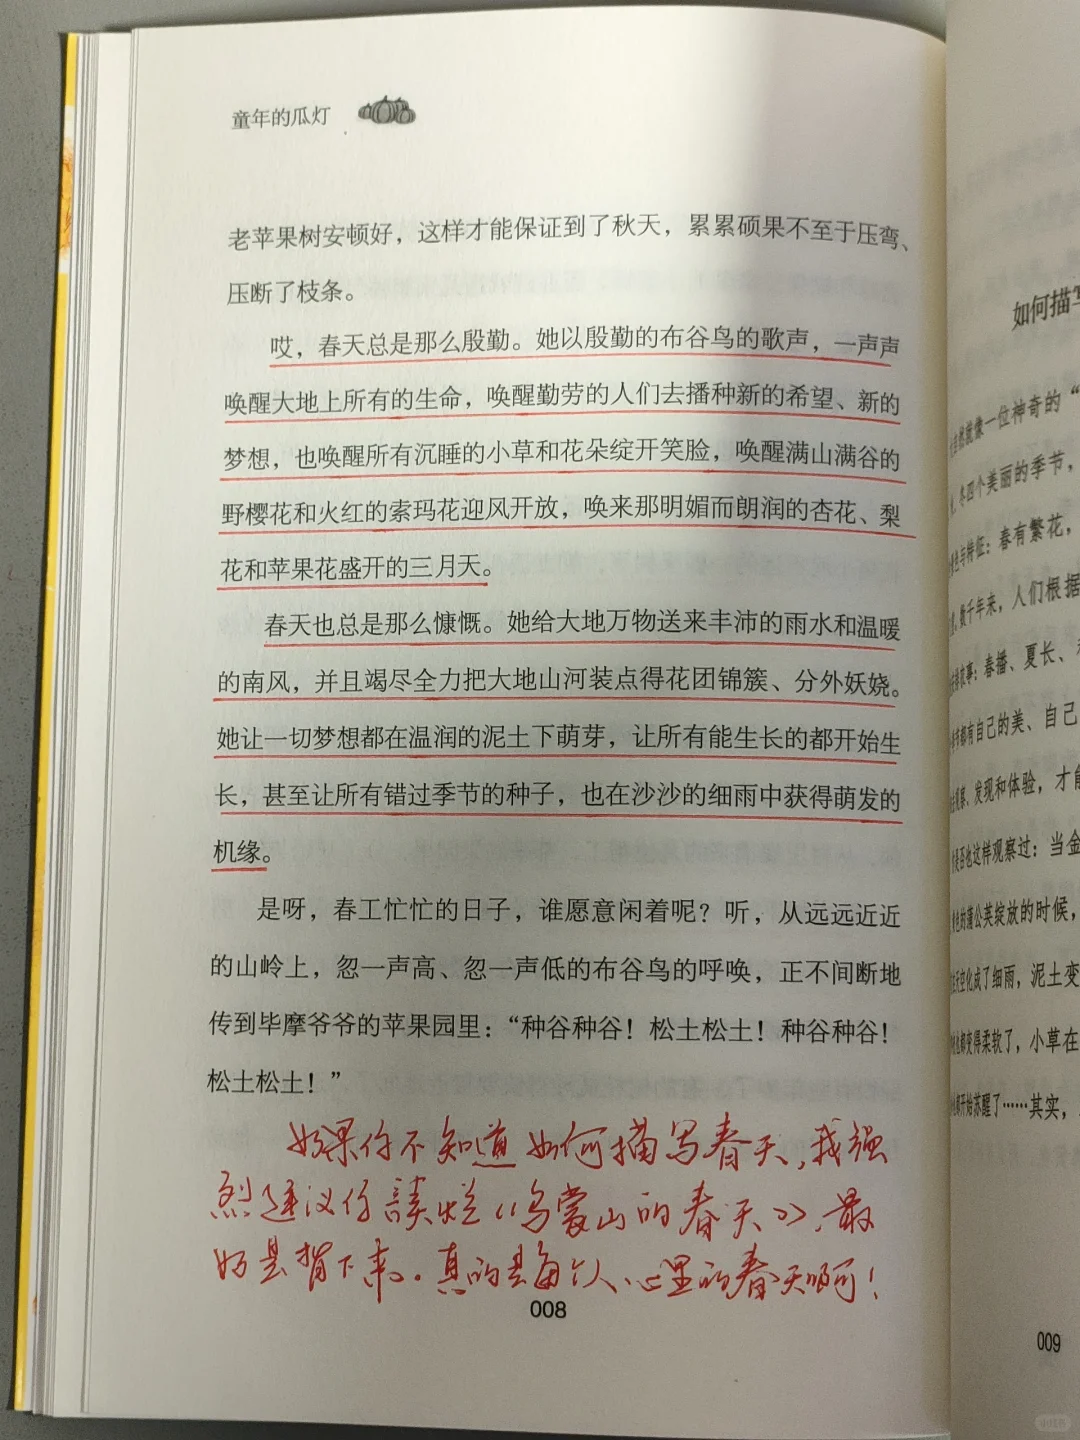 童年的瓜灯
老苹果树安顿好，这样才能保证到了秋天，累累硕果不至于压弯、
压断了枝条。
哎，春天总是那么殷勤。她以殷勤的布谷鸟的歌声，一声声
唤醒大地上所有的生命，唤醒勤劳的人们去播种新的希望、新的
梦想，也唤醒所有沉睡的小草和花朵绽开笑脸，唤醒满山满谷的
野樱花和火红的索玛花迎风开放，唤来那明媚而朗润的杏花、梨
花和苹果花盛开的三月天。
春天也总是那么慷慨。她给大地万物送来丰沛的雨水和温暖
的南风，并且竭尽全力把大地山河装点得花团锦簇、分外妖娆。
她让一切梦想都在温润的泥土下萌芽，让所有能生长的都开始生
长，甚至让所有错过季节的种子，也在沙沙的细雨中获得萌发的
机缘。
是呀，春工忙忙的日子，谁愿意闲着呢？听，从远远近近
的山岭上，忽一声高、忽一声低的布谷鸟的呼唤，正不间断地
传到毕摩爷爷的苹果园里：“种谷种谷！松土松土！种谷种谷！
松土松土！”
如果你不知道如何描写春天，我强
烈建议你读烂《乌蒙山的春天》，最
好是背下来。真的是每个人心里的春天啊！
008
如何描写
大自然就像一位神奇的“
冬四个美丽的季节，
色与特征：春有繁花，
数千年来，人们根据
农事：春播、夏长、
都有自己的美、自己
观察、发现和体验，才能
是否也这样观察过：当金
色的蒲公英绽放的时候，
天空化成了细雨，泥土变
都变得柔软了，小草在
都开始苏醒了……其实，
009